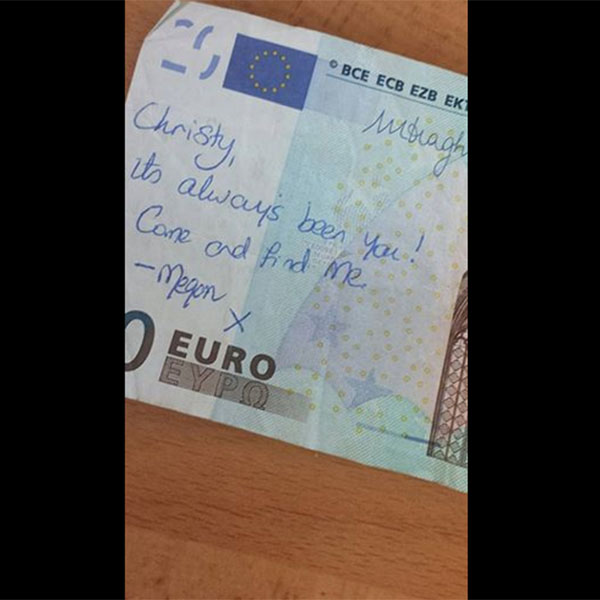 © BCE ECB EZB EKT
Christy,
its always been you!
Come and find me.
-Megan
X
0 EURO
EYPΩ